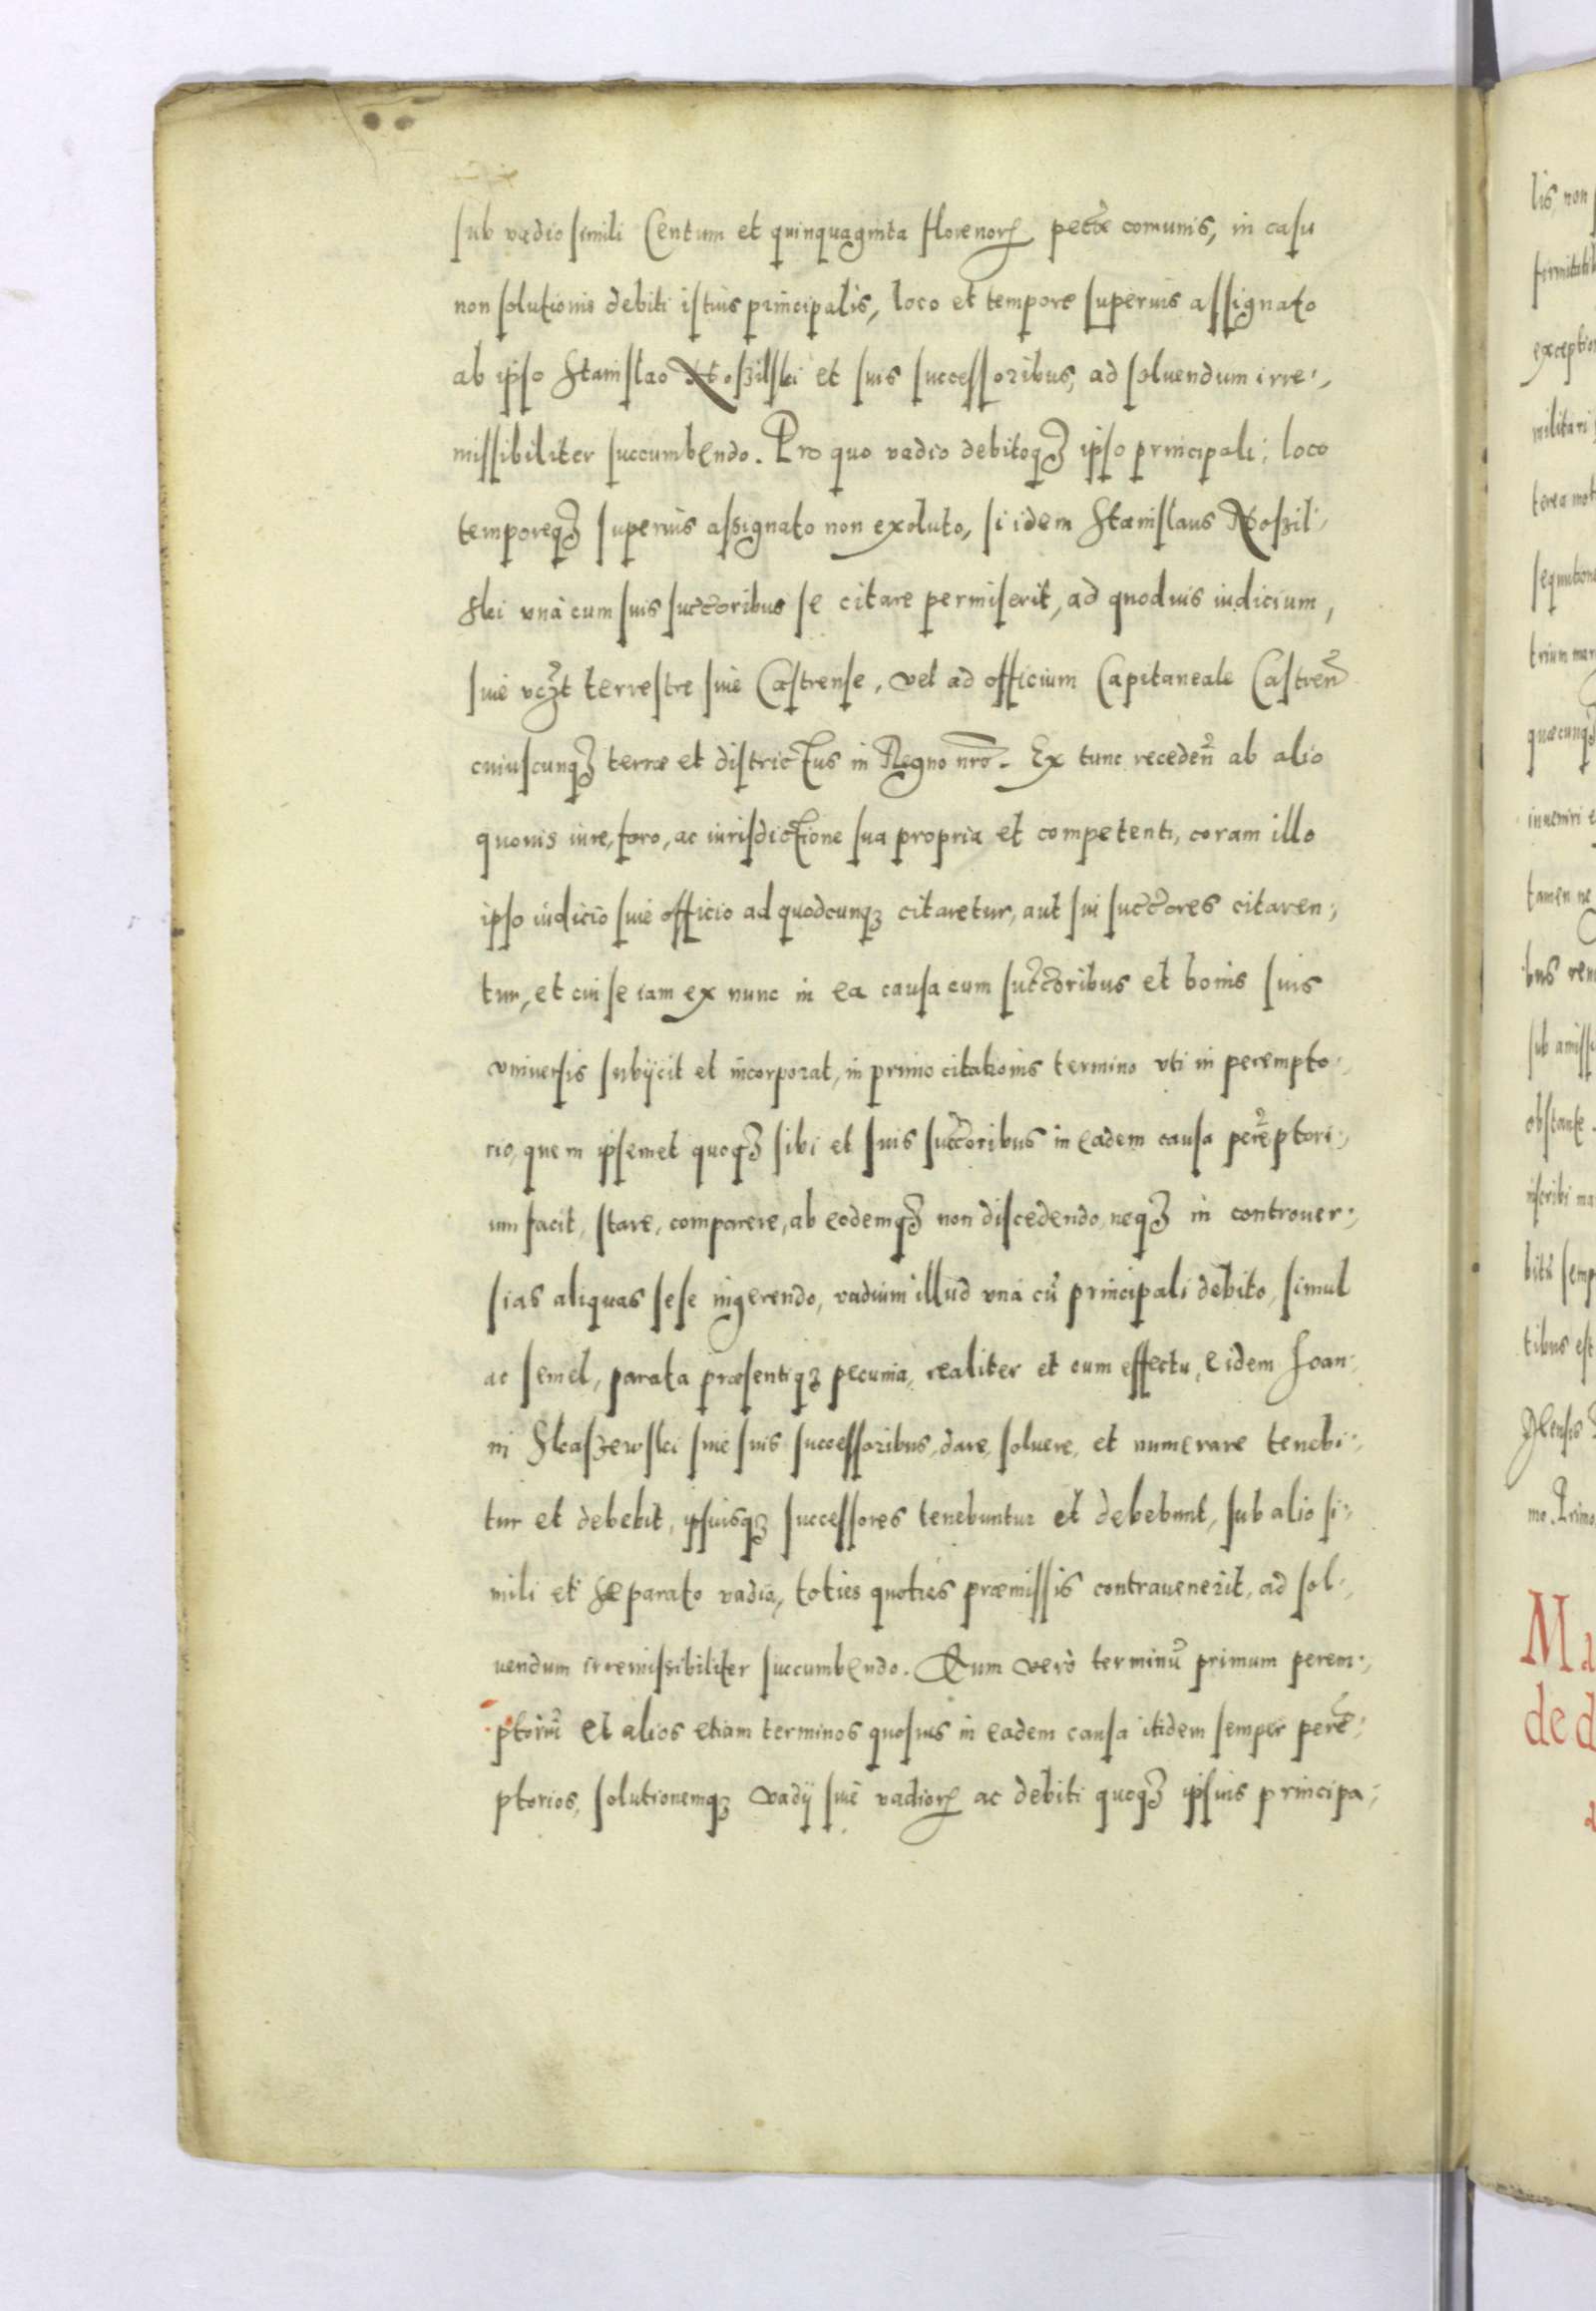 sub vadio simili Centum et quinquaginta florenorꝝ pecc̃e comunis, in casu
non solutionis debiti istius principalis, loco et tempore superius assignato
ab ipso Stanislao et suis successoribus, ad soluendum irre:,
missibiliter succumbendo. Pro quo vadio debitoqꝫ ipso principali, loco
temporeqꝫ superius assignato non exoluto, si idem Stanislaus
ski vnà cum suis succc̃oribus se citare permiserit, ad quoduis iudicium,
siue vcꝫt terrestre siue Castrense, vel ad officium Capitaneale Castreñ
cuiuscunqꝫ terræ et districtus in Regno nr̃o. Ex tunc recedeñ ab alio
quouis iure, foro, ac iurisdictione sua propria et competenti, coram illo
ipso iudicio siue officio ad quodcunqꝫ citaretur, aut sui succc̃ores citaren:,
tur, et cui se iam ex nunc in ea causa cum succc̃oribus et bonis suis
vniuersis subijcit et incorporat, in primo citationis termino vti in perempto:,
rio, quem ipsemet quoqꝫ sibi et suis succc̃oribus in eadem causa perẽptori:,
um facit, stare, comparere, ab eodemqꝫ non discedendo, neqꝫ in controuer:,
sias aliquas sese ingerendo, vadium illud vnà cũ principali debito, simul
ac semel, parata præsentiqꝫ pecunia, realiter et cum effectu, eidem Joan:
ni Skaszewski siue suis successoribus, dare, soluere, et numerare tenebi:,
tur et debebit, ipsiusqꝫ successores tenebuntur et debebunt, sub alio si:,
mili et separato vadio, toties quoties præmissis contrauenerit, ad sol:,
uendum irremissibiliter succumbendo. Eum verò terminũ primum perem:,
ptoriũ et alios etiam terminos quosuis in eadem causa itidem semper perẽ:,
ptorios, solutionemqꝫ vadij siue vadiorꝝ ac debiti quoqꝫ ipsius principa:,
lis, non
exception
militari
terea mot
sequution
trium mer
quæcunqꝫ
inueniri e
tamen ne
bus rem
sub amissi
obstante.
bitũ semp
tibus est
mo. Primo
Ma
de d